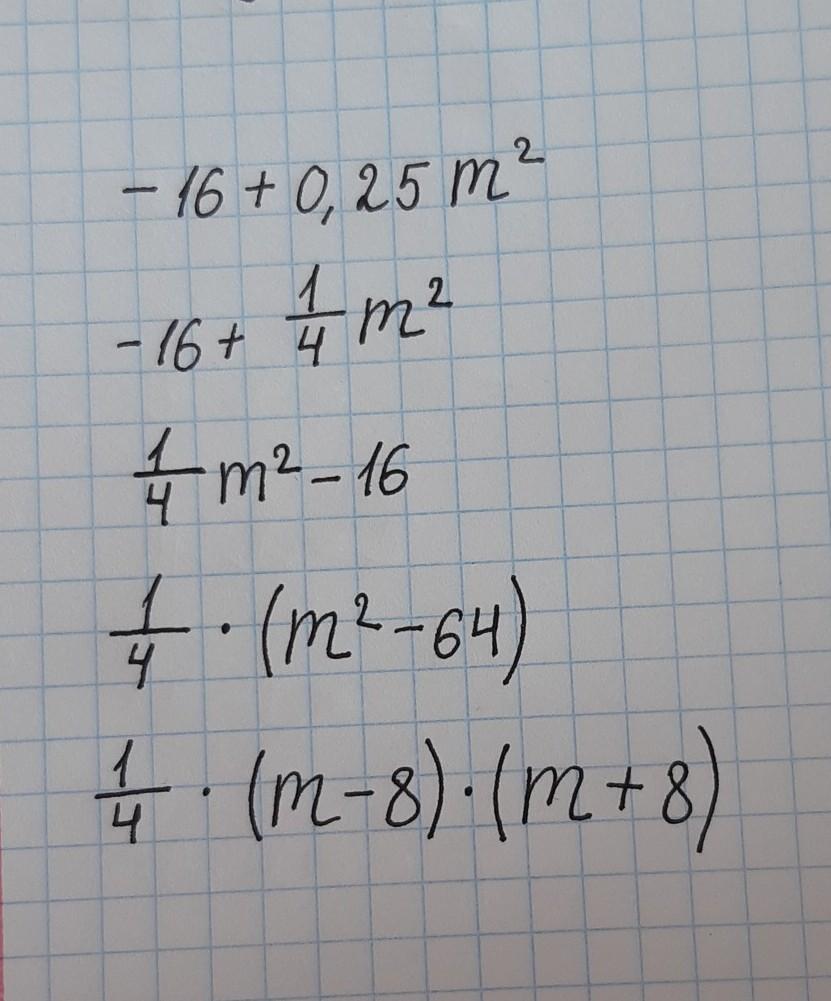 -16 + 0,25 m²
-16 + 1/4 m²
1/4 m² - 16
1/4 · (m² - 64)
1/4 · (m - 8) · (m + 8)